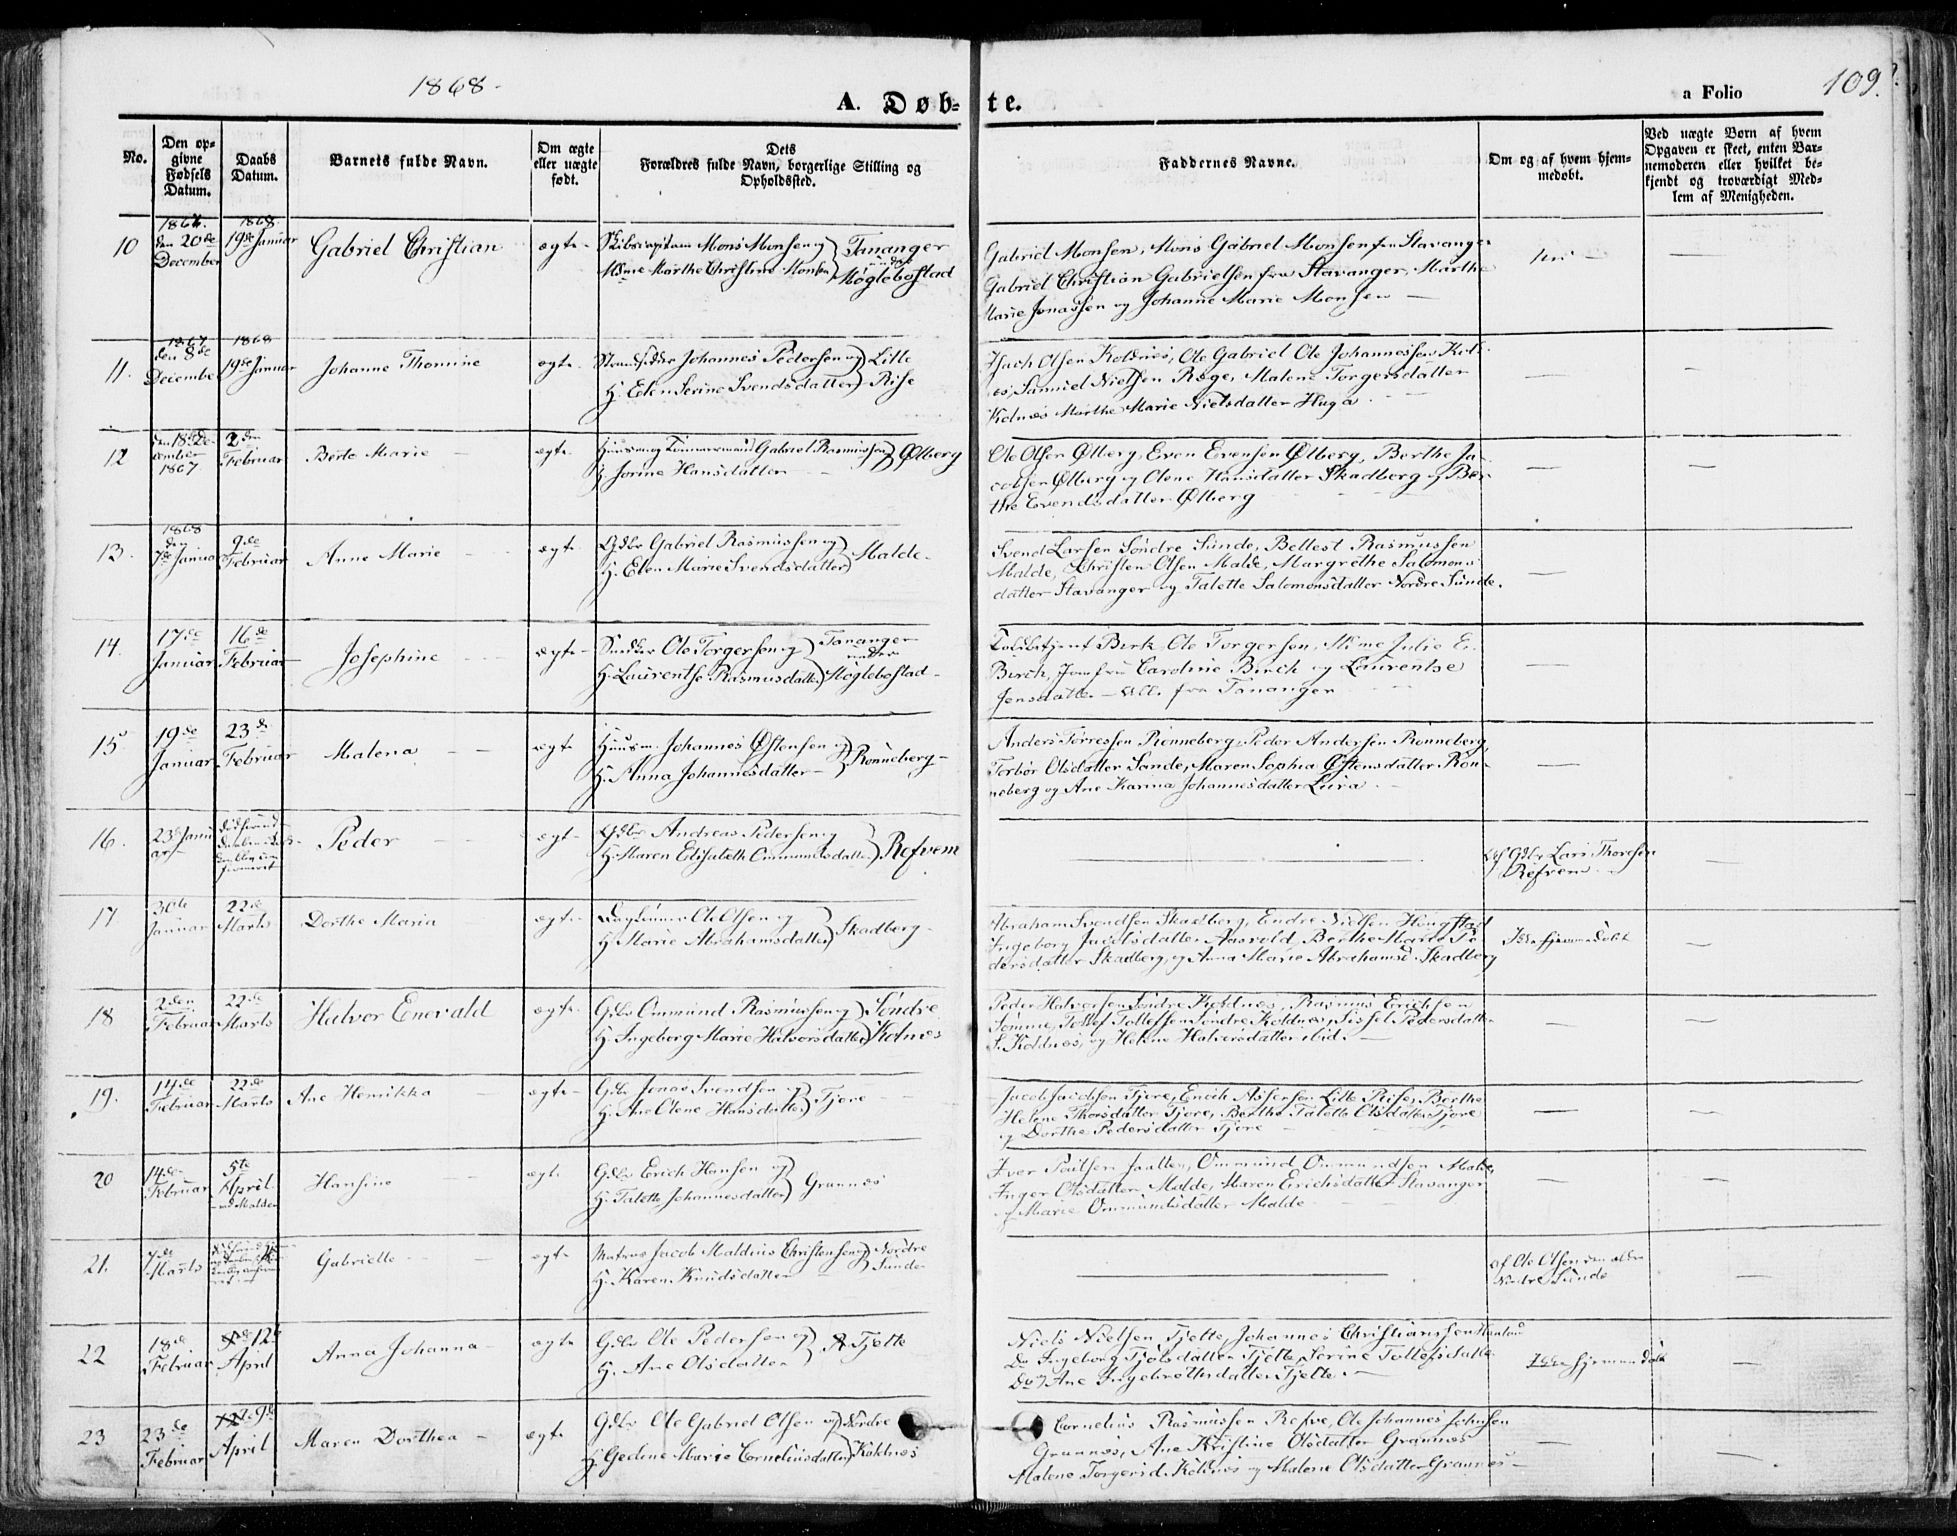 1868.
A. Døb-
te.
a Folio
109.
No.
Den op-
givne
Fødsels
Datum.
Daabs
Datum.
Barnets fulde Navn.
Om ægte
eller uægte
født.
Dets
Forældres fulde Navn, borgerlige Stilling og
Opholdssted.
Faddernes Navne.
Om og af hvem hjem-
medøbt.
Ved uægte Børn af hvem
Opgaven er skeet, enten Bar-
nemoderen eller hvilket be-
kjendt og troværdigt Med-
lem af Menigheden.
10
1867.
den 20de
December
1868
19de Januar
Gabriel Christian
ægte
Skibscapitain Mons Monsen og
Mme Marthe Christine Monsen
Tananger
under
Møglebøstad
Gabriel Monsen, Mons Gabriel Monsen fra Stavanger
Gabriel Christian Gabrielsen fra Stavanger, Marthe
Marie Jonassen og Johanne Marie Monsen —
11.
1867
den 8de
December
1868
19de Januar
Johanne Thomine
ægte
Strandsidder Johannes Pedersen og
H. Elen Serine Svendsdatter
Lille
Rise
Isach Olsen Koldnes, Ole Gabriel Ole Johannessen Kol-
es, Samuel Nielsen Røge, Malene Torgersdatter
Kolnæs Marthe Marie Nielsdatter Huga
—
12
den 18de De-
cember
1867
2den
Februar
Berte Marie
ægte
Huusm og Tømmermand Gabriel Rasmussen
H. Jorine Hansdatter
Ølberg
Ole Olsen Ølberg, Even Evensen Ølberg, Berthe Ja-
cobsen Ølberg og Olene Hansdatter Skadberg og Ber-
the Evendsdatter Ølberg
—
13.
1868
den
7de Januar
9de
Februar
Anne Marie
ægte
Gdbr Gabriel Rasmussen og
H. Elen Marie Svendsdatter
Malde
Svend Larsen Søndre Sunde, Bellest Rasmussen
Malde, Christen Olsen Malde, Margrethe Salomons
datter Stavanger og Talette Salomonsdatter Nordre Sunde.
—
14.
17de
Januar
16de
Februar
Josephine
ægte
Ole Torgersen og
H. Laurentse Rasmusdatter
Tananger
under
Møglebøstad
Toldbetjent Birk, Ole Torgersen, Mme Julie E.
Birch, Jomfru Caroline Birch og Laurentse
Jensdatter — alle fra Tananger
—
15
19de
Januar
23de
Februar
Malena
ægte
Huusm. Johannes Østensen og
H. Anna Johannesdatter
Rønneberg
Anders Torressen Rønneberg, Peder Andersen Rønneberg,
Torbør Olsdatter Sande, Maren Sophia Østensdatter Røn-
neberg og Ane Karina Johannesdatter Lura
—
16.
23de Janu
ar
Peder
ægte
Gdbr Andreas Pedersen og
H. Maren Elisabeth Ommundsdatter
Refvem
Af Gdbr Lars Thorsen
Refvem
—
17
30te
Januar
22de
Marts
Dorthe Maria
ægte
Daglønner Ole Olsen og
H. Marie Abrahamsdatter
Skadberg
Abraham Svendsen Skadberg, Endre Nielsen Hougstad
Ingeborg Jacobsdatter Aasvold, Berthe Marie Pe-
dersdatter Skadberg, og Anna Marie Abrahamsd. Skadberg
Ikke hjemmedøbt
—
18
2den
Februar
22de
Marts
Halvor Enevald
ægte
Gdbr Ommund Rasmussen og
H. Ingeborg Marie Halvorsdatter
Søndre
Kolnes
Peder Halvorsen Søndre Koldnes, Rasmus Erichsen
Sømme, Tollef Tollefsen Søndre Koldnes, Sissel Pedersdatter
S. Koldnes, og Helene Halvorsdatter ibid.
—
19.
14de
Februar
22de
Marts
Ane Henrikka
ægte
Gdbr Jonas Svendsen og
H. Ane Olene Hansdatter
Tjore
Jacob Jacobsen Tjore, Enoch Assersen Lille Riise, Berthe
Helene Thorsdatter Tjore, Berthe Talette Olsdatter Tjore
og Dorthe Pedersdatter Tjore
—
20
14de
Februar
5te
April
Hansine
ægte
Gdbr Erich Hansen og
H. Talette Johannesdatter
Grannes
Iver Poulsen Jaatten, Ommund Ommundsen Malde,
Inger Olsdatter Malde, Maren Erichsdatter Stavanger
og Marie Ommundsdatter Malde
—
21.
7de
Marts
Gabrielle
ægte
Matros Jacob Maldius Christensen og
H. Karen Knudsdatter
Nordre
Sunde
af Ole Olsen den ældre
Nordre Sunde
—
22
18de
Februar
12te
April
Anna Johanna
ægte
Gdbr Ole Pedersen og
H. Ane Olsdatter
Tjelte
Niels Nielsen Tjelte, Johannes Christianssen
Do Ingeborg Tjølsdatter Tjelte, Serine Tollefsdatter
Do og Ane Ingebretsdatter Tjelte.
Ikke hjemmedøbt
—
23
23de
Februar
9de
April
Maren Dorthea
ægte
Gdbr Ole Gabriel Olsen og
H. Gedine Marie Corneliusdatter
Nordre
Koldnes
Cornelius Rasmussen Refve, Ole Johannes Johnsen
Grannes, Ane Kristine Olsdatter Grannes
Malene Torgersd. Koldnes og Malene Olsdatter Grannes
—